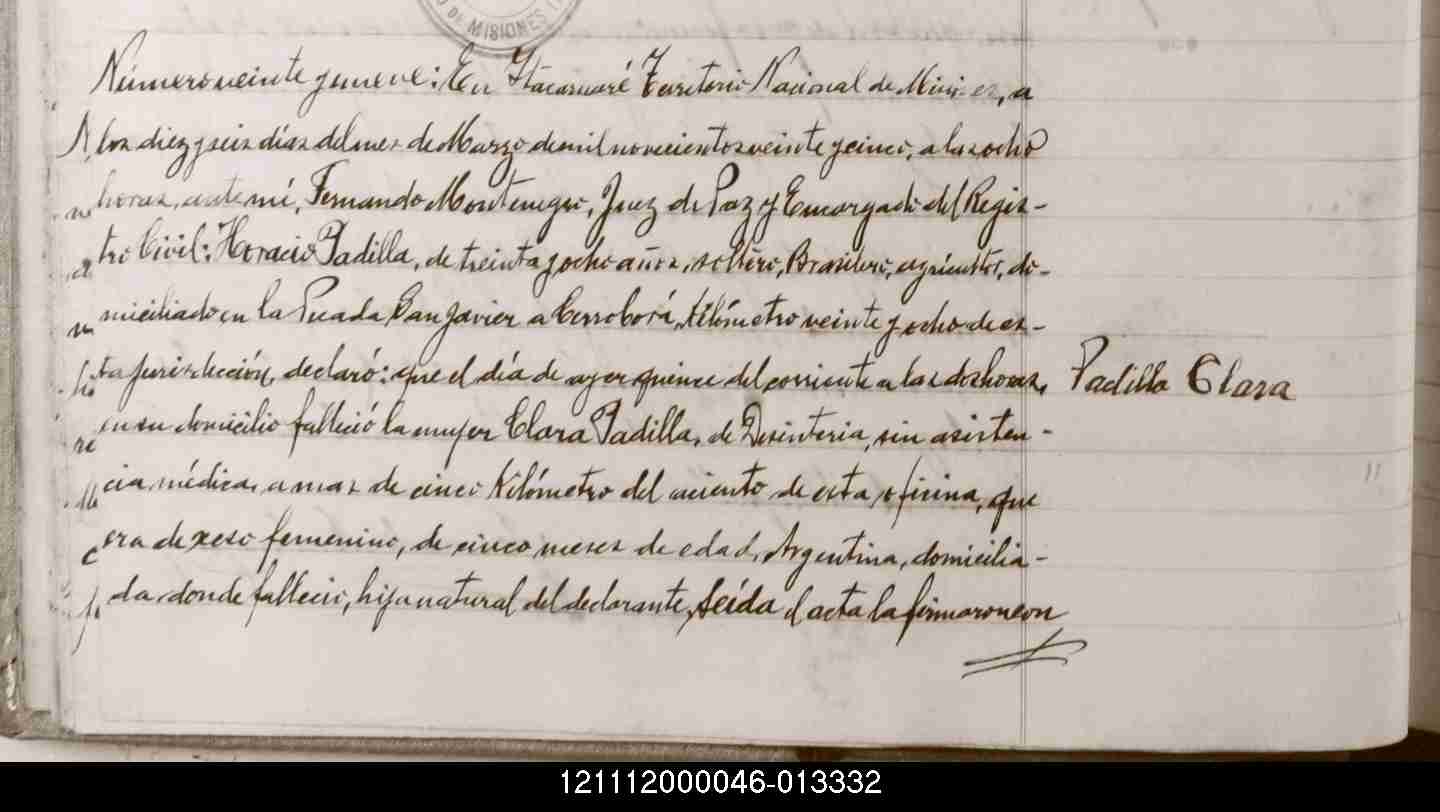 DE MISIONES
Número veinte y nueve: En Itacaruaré Territorio Nacional de Misiones, a
los diez y seis días del mes de Marzo de mil novecientos veinte y cinco, a las ocho
horas, ante mí, Fernando Montenegro, Juez de Paz y Encargado del Regis-
tro Civil: Horacio Padilla, de treinta y ocho años, soltero, Brasilero, agricultor, do-
miciliado en la Picada San Javier a Cerro Corá, Kilómetro veinte y ocho de es-
ta jurisdicción, declaró: que el día de ayer quince del corriente a las dos horas,
Padilla Clara
en su domicilio falleció la mujer Clara Padilla, de Desinteria, sin asisten-
cia médica, a mas de cinco Kilómetro del aciento de esta oficina, que
era de xeso femenino, de cinco meses de edad, Argentina, domicilia-
da donde falleció, hija natural del declarante, Leída el acta la firmaron con
121112000046-013332